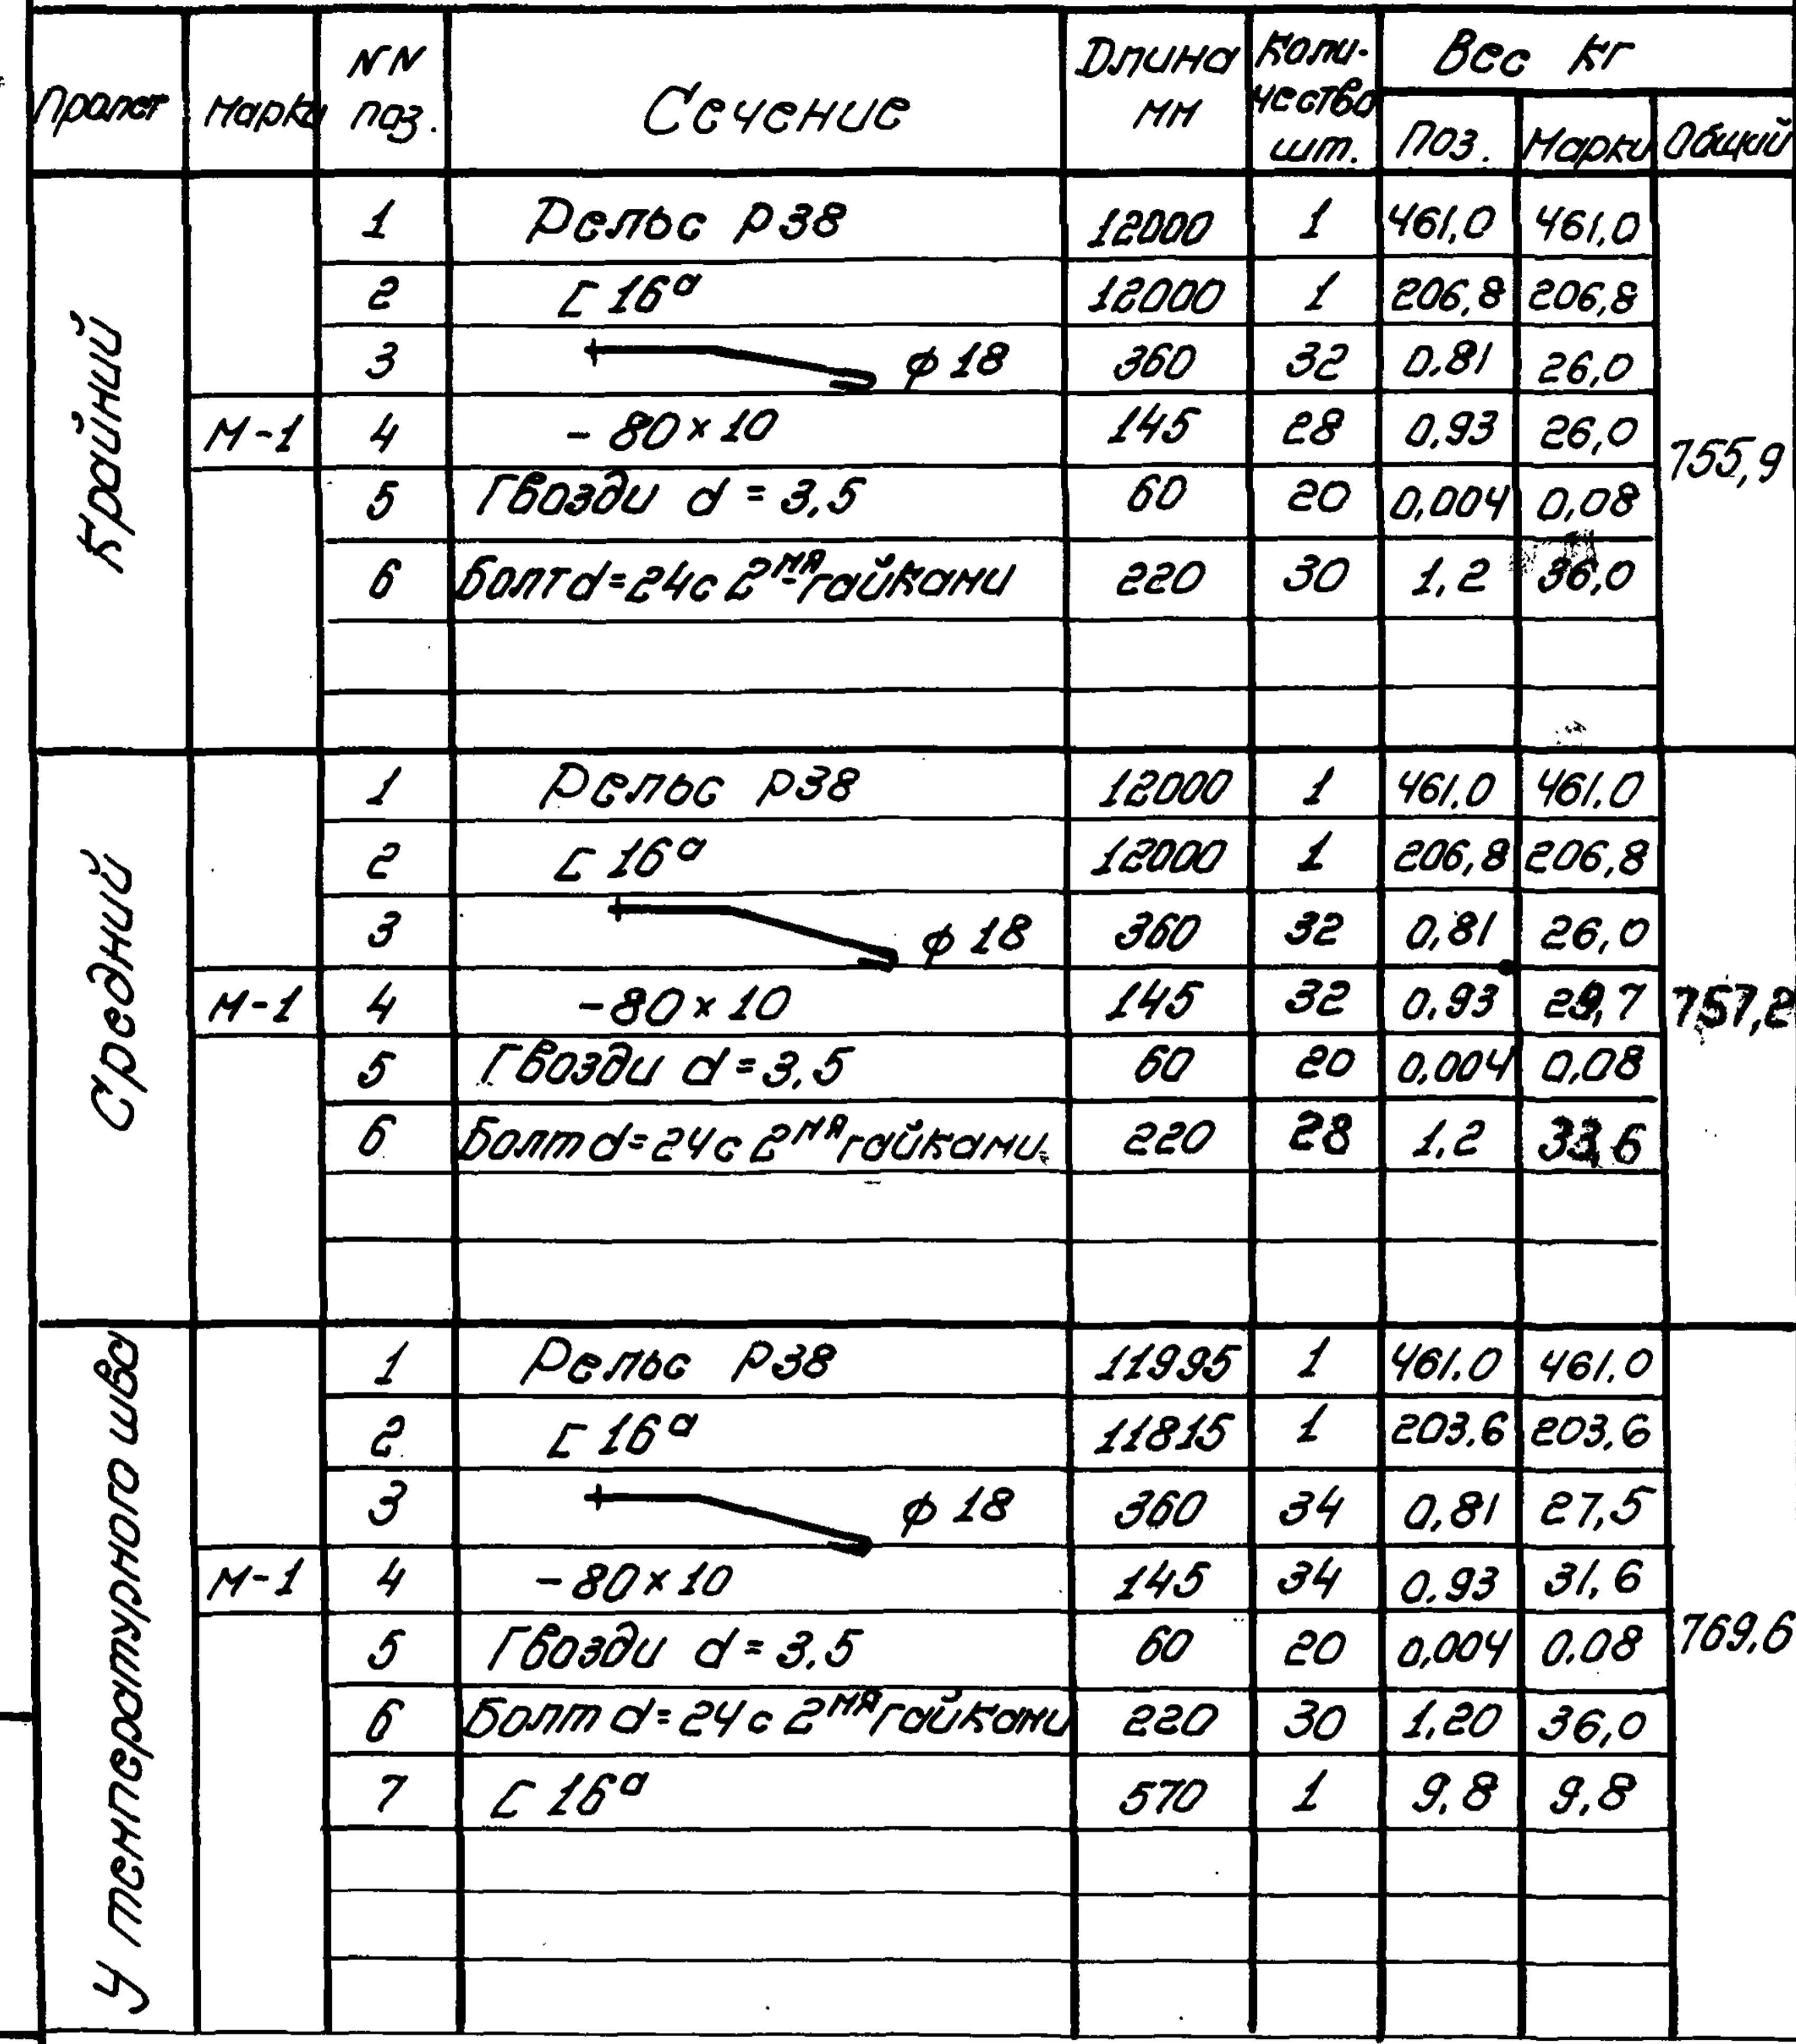 Пролет Марка NN поз. Сечение Длина мм Коли-чество шт. Вес кг
Поз. Марки Общий
Крайний
1 Рельс Р38 12000 1 461,0 461,0
2 [ 16ª 12000 1 206,8 206,8
3 ϕ 18 360 32 0,81 26,0
М-1 4 - 80 × 10 145 28 0,93 26,0 755,9
5 Гвозди d = 3,5 60 20 0,004 0,08
6 Болт d=24 с 2мя гайками 220 30 1,2 36,0
Средний
1 Рельс Р38 12000 1 461,0 461,0
2 [ 16ª 12000 1 206,8 206,8
3 ϕ 18 360 32 0,81 26,0
М-1 4 - 80 × 10 145 32 0,93 29,7 757,2
5 Гвозди d = 3,5 60 20 0,004 0,08
6 Болт d=24 с 2мя гайками 220 28 1,2 33,6
У температурного шва
1 Рельс Р38 11995 1 461,0 461,0
2 [ 16ª 11815 1 203,6 203,6
3 ϕ 18 360 34 0,81 27,5
М-1 4 - 80 × 10 145 34 0,93 31,6
5 Гвозди d = 3,5 60 20 0,004 0,08 769,6
6 Болт d=24 с 2мя гайками 220 30 1,20 36,0
7 [ 16ª 570 1 9,8 9,8